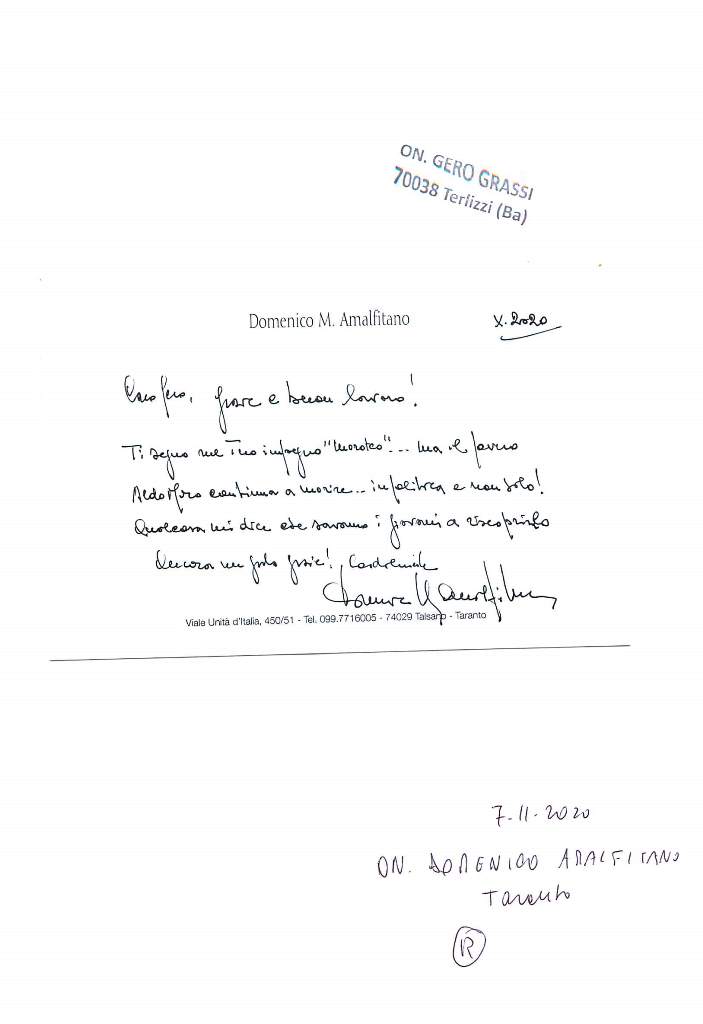 ON. GERO GRASSI
70038 Terlizzi (Ba)
Domenico M. Amalfitano
X. 2020
Caro Gero, grazie e buon lavoro!
Ti seguo nel Tuo impegno "moroteo"... ma il
Aldo Moro continua a morire... in politica e non solo!
Qualcosa mi dice che saranno i giovani a riscoprirlo
Ancora un grazie! Cordialmente
Viale Unità d'Italia, 450/51 - Tel. 099.7716005 - 74029 Talsano - Taranto
7-11-2020
ON. DOMENICO AMALFITANO
Taranto
R